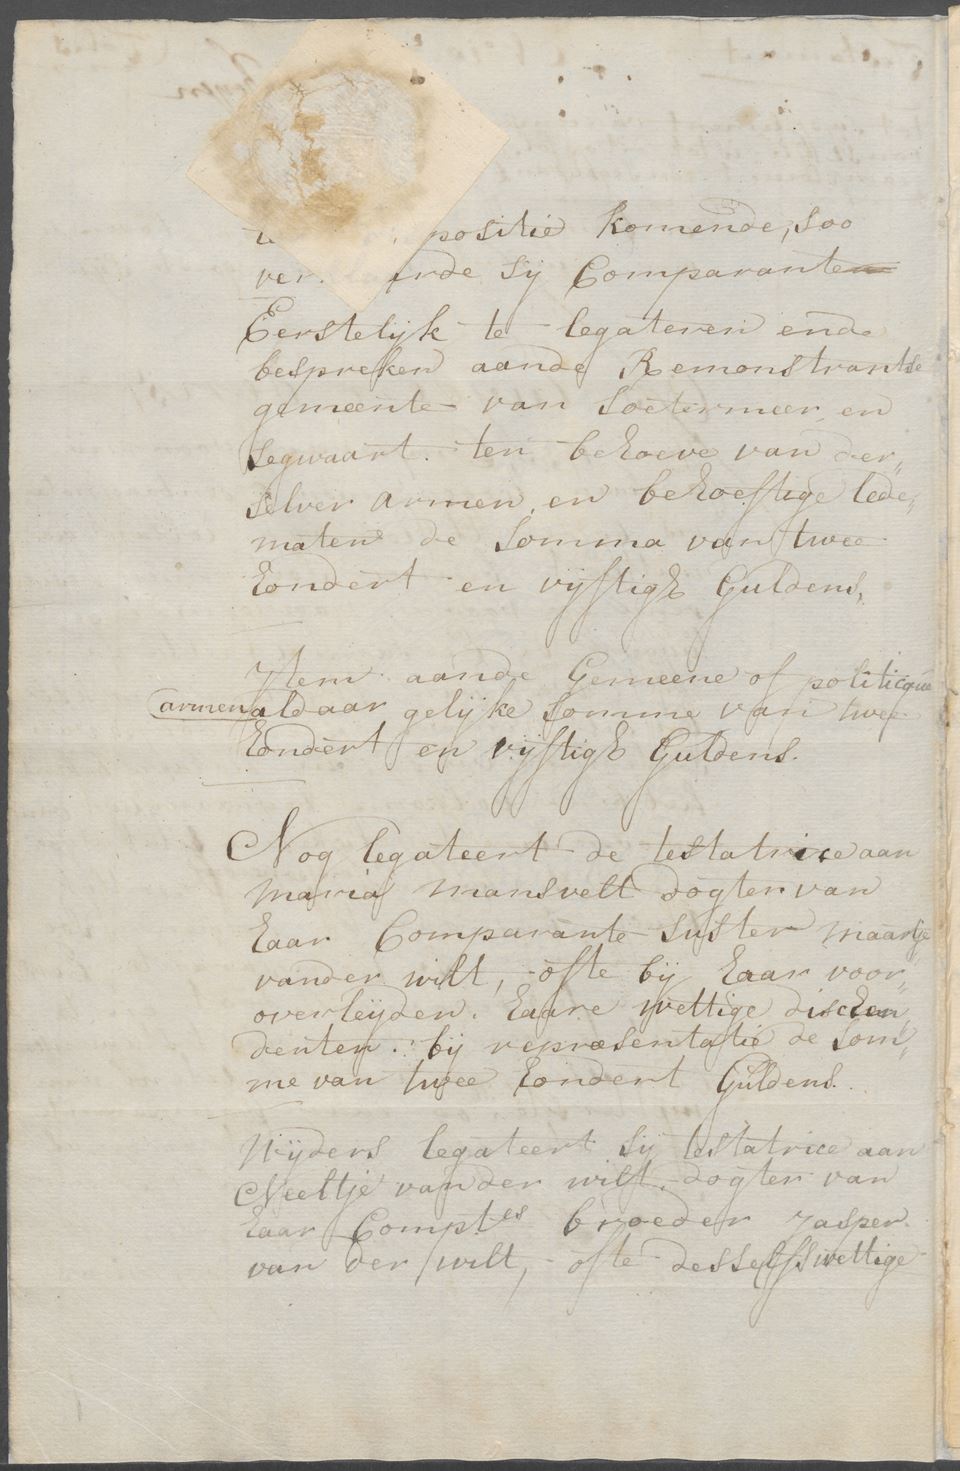 positie komende, soo
ver erde sij Comparante
Eerstelijk te legateren ende
bespreken aande Remonstrantse
gemeente van Soetermeer en
Segwaart. ten behoeve van der„
selver armen en behoeftige lede„
maten de Somma van twee
hondert en vijftigh Guldens,
Item aande Gemeene of politicque
armen aldaar gelijke Somme van twee
hondert en vijftigh Guldens.
Nog legateert de testatrice aan
Maria Mansvelt dogter van
haar Comparante suster Maartje
vander wilt, ofte bij haar voor„
overleijden. haare wettige discen„
denten. bij representatie de Som„
me van twee hondert Guldens.
Wijders legateert sij testatrice aan
Neeltje vander wilt. dogter van
haar Compt.es broeder Jasper
van der wilt, ofte desselfs wettige